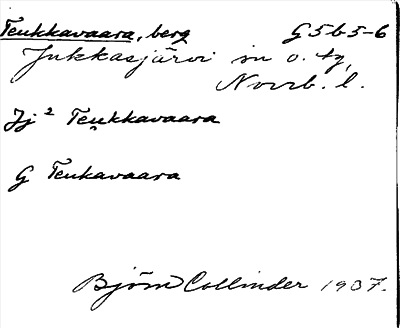 Teukkavaara, berg G5b5-6
Jukkasjärvi sn o. tg,
Norrb. l.
Jj² Teu̯kkavaara
G Teukavaara
Björn Collinder 1937.